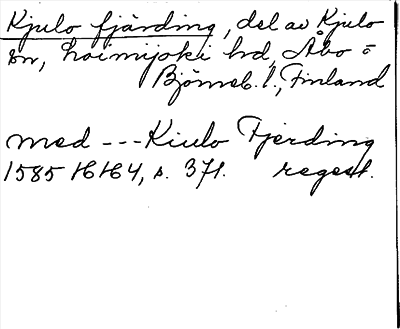 Kjulo fjärding, del av Kjulo
sn, Loimijoki hd, Åbo o
Björneb. l., Finland
med --- Kiulo Fjerding
1585 16164, s. 371. regest.